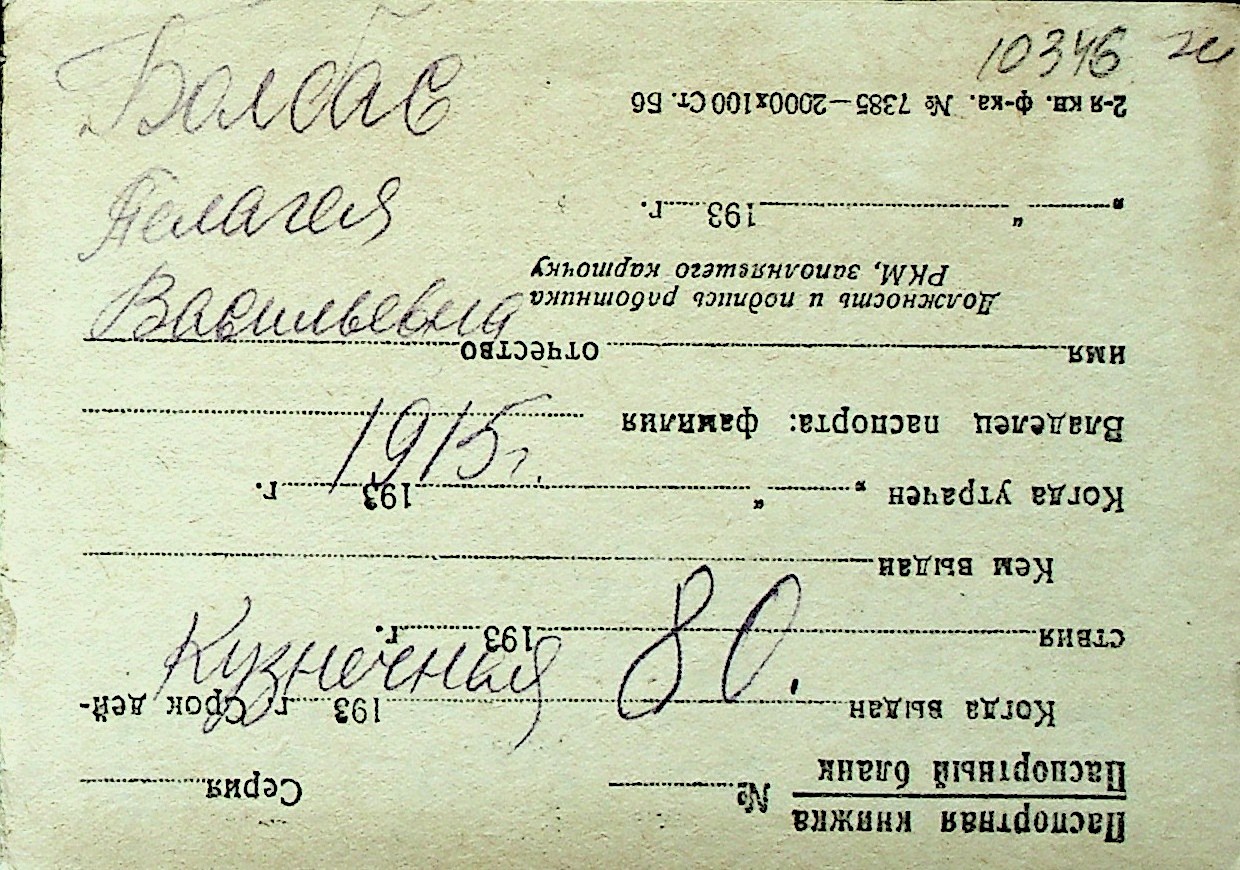 10346 ж
Болбас
Пелагея
Васильевна
1915 г.
Кузнечная 80.
Паспортная книжка
Паспортный бланк № Серия
Когда выдан 193 г. Срок дей-
ствия 193 г.
Кем выдан
Когда утрачен „ “ 193 г.
Владелец паспорта: фамилия
имя отчество
Должность и подпись работника
РКМ, заполнявшего карточку
„ “ 193 г.
2-я кн. ф-ка. № 7385—2000х100 Ст. Б6